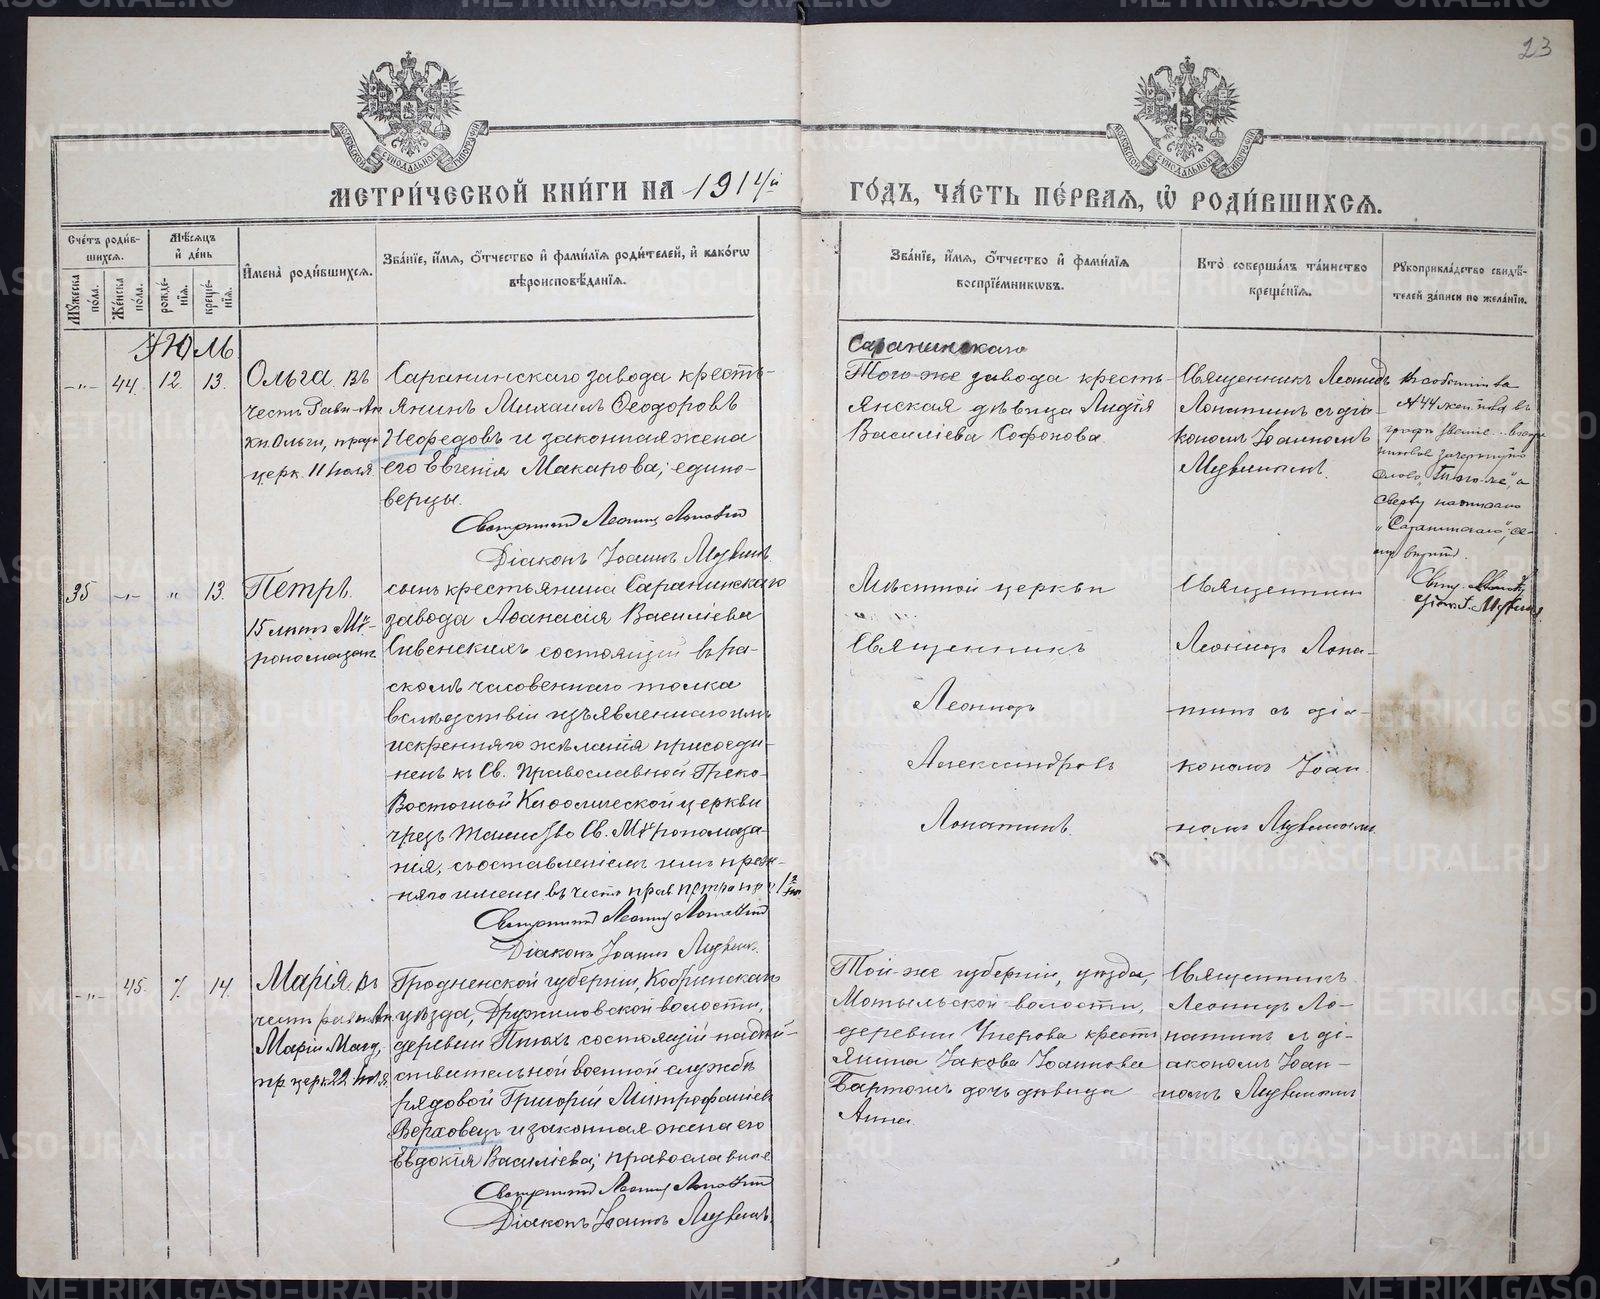 23
МОСКОВСКОЙ СѴНОДАЛЬНОЙ ТИПОГРАФІИ
МОСКОВСКОЙ СѴНОДАЛЬНОЙ ТИПОГРАФІИ
МЕТРИ́ЧЕСКОЙ КНИ́ГИ НА 1914й
ГО́ДЪ, ЧА́СТЬ ПЕ́РВАѦ, Ѡ҆ РОДИ́ВШИХСѦ.
Сче́тъ роди́в-
шихсѧ.
Мѣ́сѧцъ
и҆ де́нь
Мꙋ́жеска
по́ла.
Же́нска
по́ла.
рожде́-
нїѧ.
креще́-
нїѧ.
И҆мена̀ роди́вшихсѧ.
Зва́нїе, и҆́мѧ, ѻ҆́тчество и҆ фами́лїѧ роди́телей, и҆ како́гѡ
вѣроисповѣ́данїѧ.
Зва́нїе, и҆́мѧ, ѻ҆́тчество и҆ фами́лїѧ
воспрїе́мникѡвъ.
Кто̀ соверша́лъ та́инство
креще́нїѧ.
Рꙋкоприкла́дство свидѣ́-
телей за́писи по жела́нїю.
Июль
-"- 44. 12. 13.
Ольга въ
честь Равн-Ап
Кн. Ольги, празд
церк. 11 Іюля
Саранинскаго завода кресть-
янинъ Михаилъ Ѳеодоровъ
Неѳедовъ и законная жена
его Евгенія Макарова; едино-
верцы.
Священникъ Леонидъ Лопатинъ
Діаконъ Іоаннъ Мувинъ.
Саранинскаго
Того-же завода кресть-
янская дѣвица Лидія
Василіева Софонова
Священникъ Леонидъ
Лопатинъ съ діа-
кономъ Іоанномъ
№ 44 жен. пола въ
графѣ званіе
зачеркнуто
слово "Того-же", а
сверху написано
"Саранинскаго",
35 -"- " 13.
Петръ.
15 лѣтъ Мѵ-
ропомазанъ
сынъ крестьянина Саранинскаго
завода Аѳанасія Василіева
Сивенскихъ состоящій въ ра-
сколѣ часовеннаго толка
вслѣдствіи изъявленнаго имъ
искренняго желанія присоеди-
ненъ къ Св. Православной Греко-
Восточной Каѳолической церкви
чрезъ таинство Св. Мѵропомаза-
нія, съ оставленіемъ ему преж-
няго имени въ честь прав Петра
Священникъ Леонидъ Лопатинъ
Діаконъ Іоаннъ
Мѣстной церкви
Священникъ
Леонидъ
Александровъ
Лопатинъ.
Священникъ
Леонидъ Лопа-
тинъ съ діа-
кономъ Іоан-
номъ
-"- 45. 7. 14.
Марія въ
честь равноап.
Маріи Магд,
пр церк 22 Іюля
Гродненской губерніи, Кобринскаго
уѣзда, Дружиловской волости,
деревни состоящій на дѣй-
ствительной военной службѣ
рядовой Григорій Митрофаніевъ
Верховецъ и законная жена его
Евдокія Василіева; православные
Священникъ Леонидъ Лопатинъ
Діаконъ Іоаннъ
Той-же губерніи, уѣзда,
Мотыльской волости,
деревни крестья
янина Іакова Іоаннова
дочь дѣвица
Анна.
Священникъ
Леонидъ Ло-
патинъ съ ді-
акономъ Іоан-
номъ